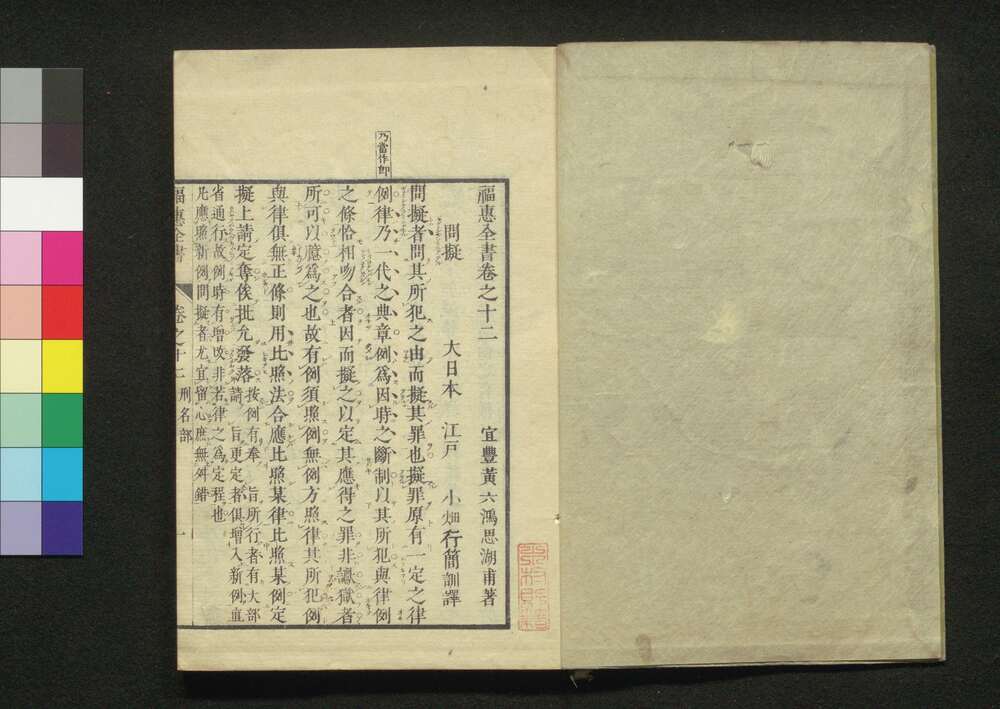 福惠全書卷之十二
宜豐黃六鴻思湖甫著
大日本 江戶 小畑行簡訓譯
問擬
問擬者問其所犯之由而擬其罪也擬罪原有一定之律
例律乃一代之典章例爲因時之斷制以其所犯與律例
之條恰相吻合者因而擬之以定其應得之罪非讞獄者
所可以臆爲之也故有例須照例無例方照律其所犯例
與律俱無正條則用比照法合應比照某律比照某例定
擬上請定奪俟批允發落按例有奉 旨所行者有大部
請 旨更定者俱增入新例直
省通行故例時有增改非若律之爲定程也
凡應照新例問擬者尤宜留心庶無舛錯
福惠全書 卷之十二 刑名部 一
乃當作即